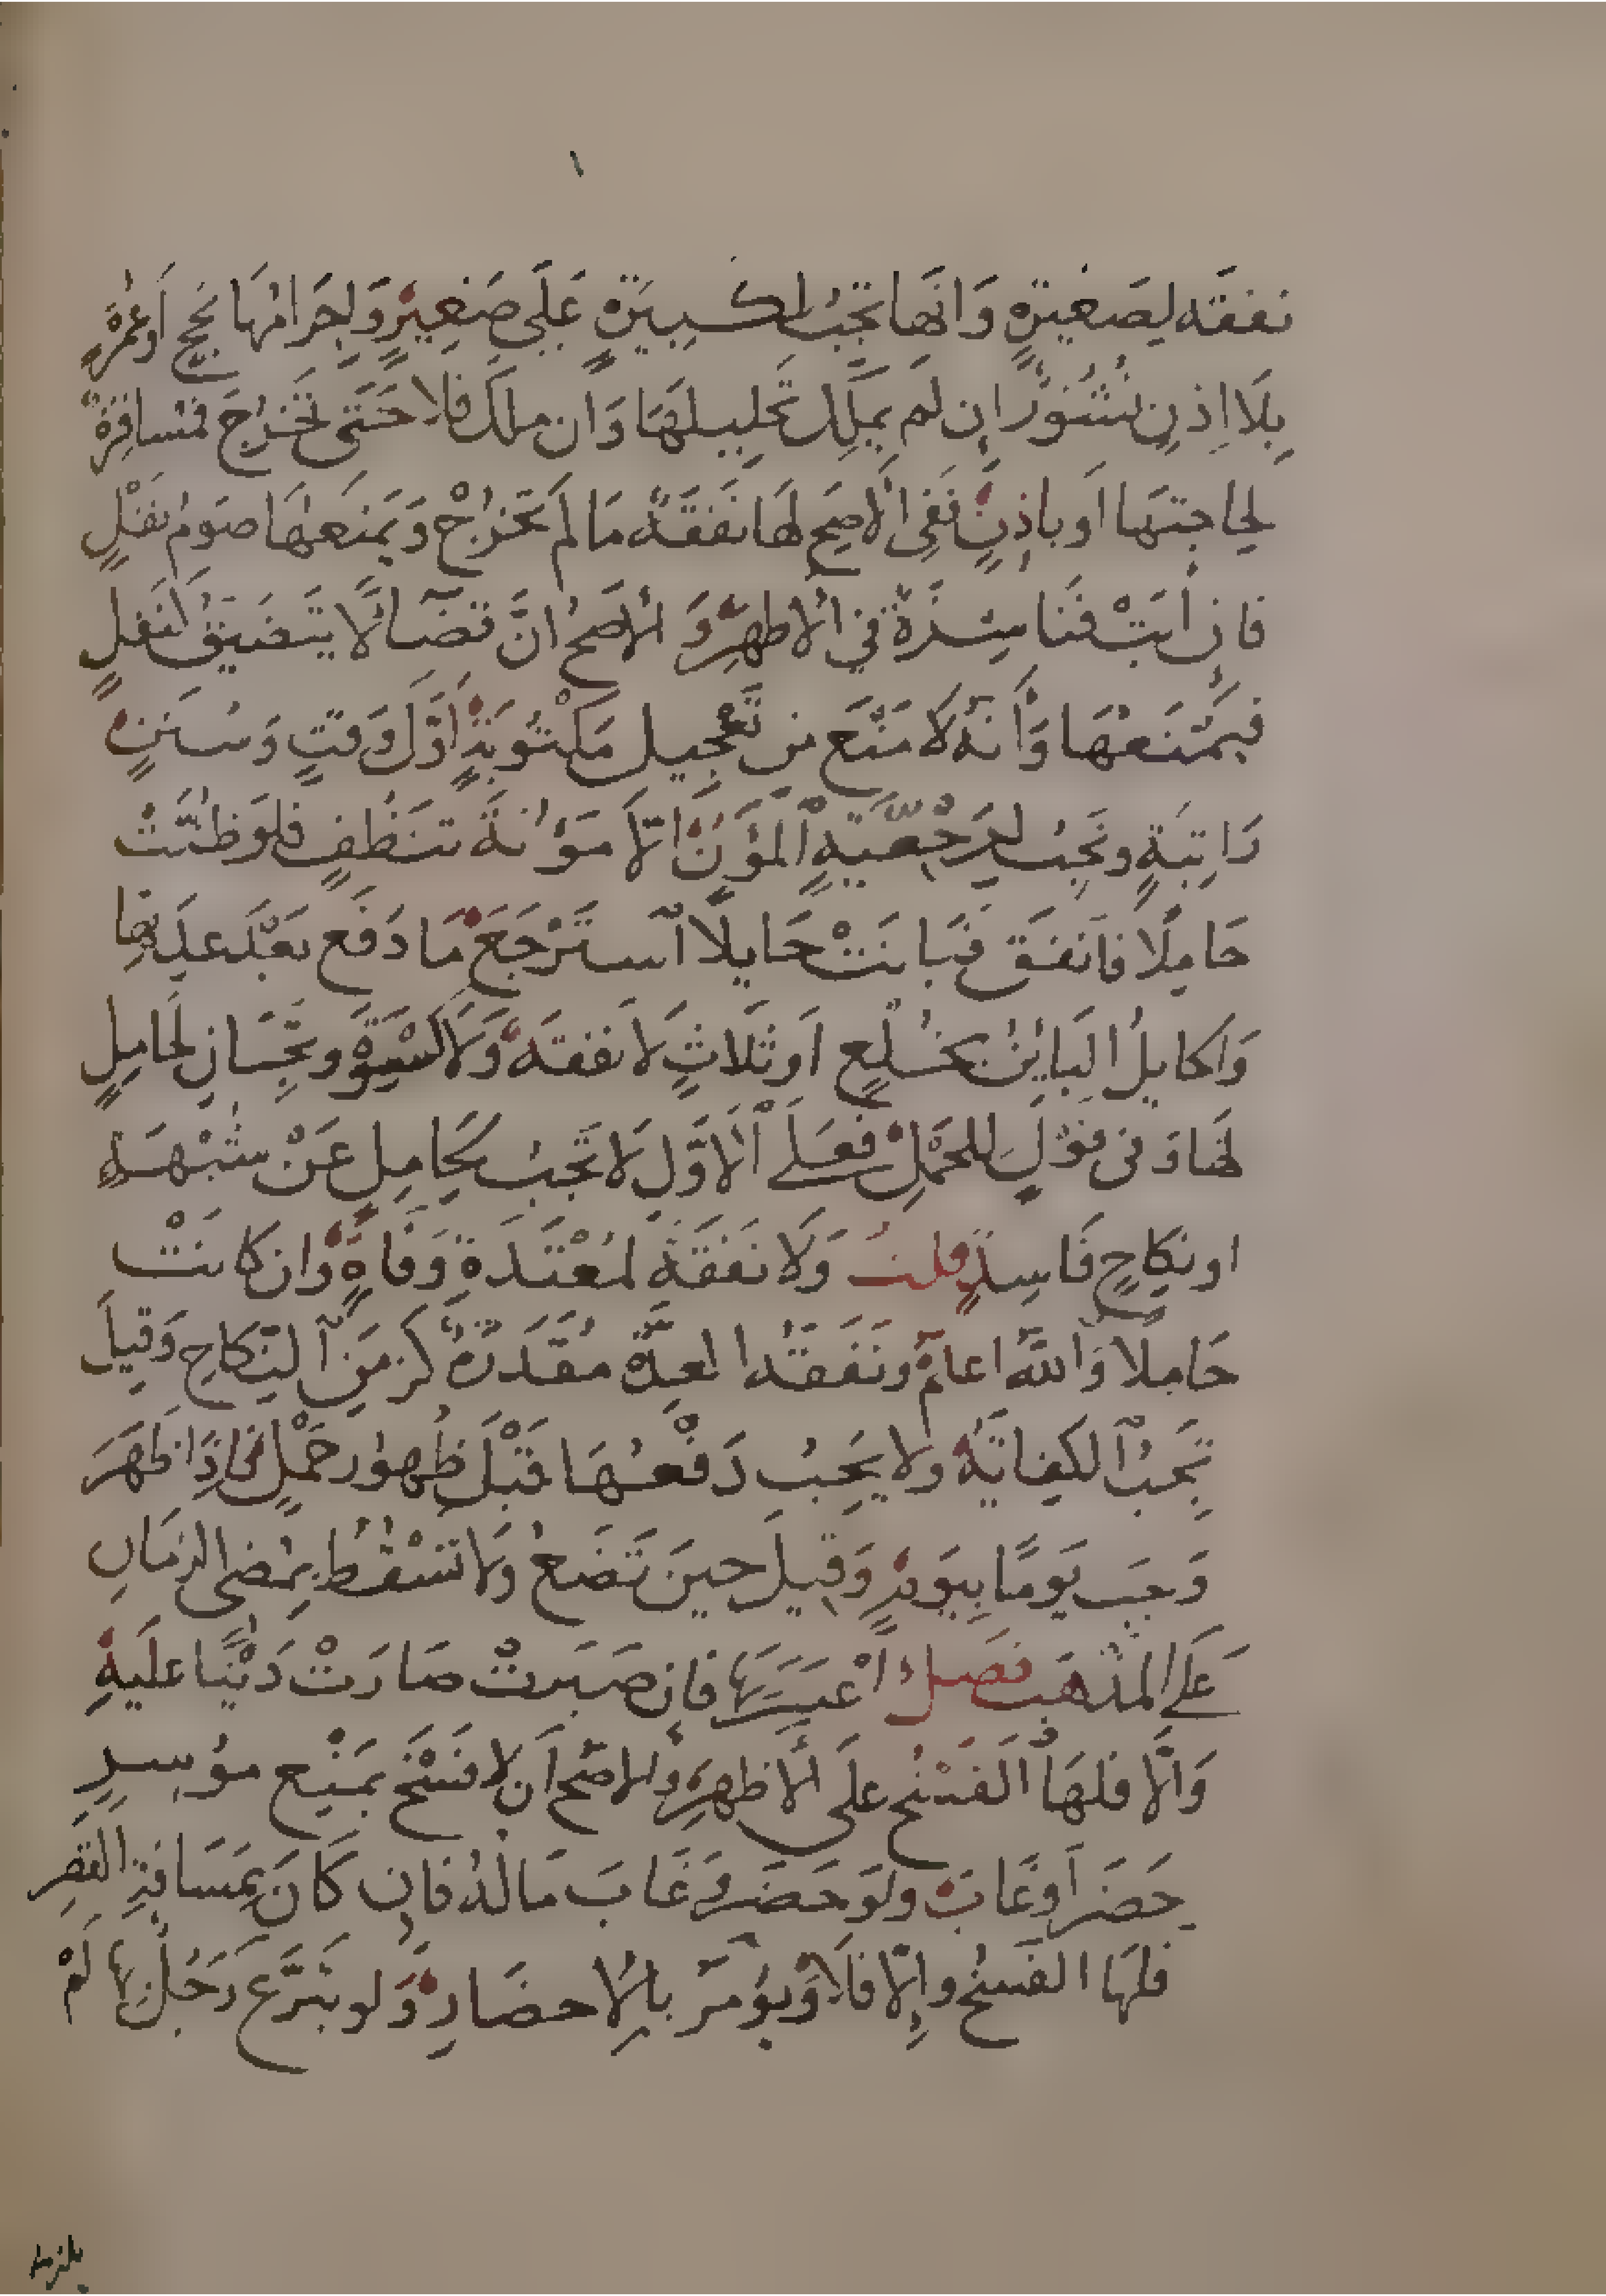 نفقه لِصَغيرَةٍ وَانَّها تَجِبُ لِكَبِيرَةٍ عَلَى صَغِيرٍ وَاِحْرَامُهَا بِحَجٍّ اَوعُمْرَةٍ
بِلَا اِذنٍ نُشُوزٌ اِن لَم يَملِك تَحْلِيلَهَا وَان ملَكَ فلا حَتَّى تَخْرُجَ فمُسَافِرَةٌ
لِحَاجتِهَا اَو باِذنٍ فَفِى الْاَصَحِ لهَا نَفَقَةٌ مَا لَم تَخرُجْ وَيَمنَعهَا صَومُ نَفْلٍ
فاِن اَبَتْ فنَاشِزَةٌ في الْاَظهِرَ وَ الْاَصَحُ انَّ قضَآ لَا يتَضَيَّقُ كنَفلٍ
فَيَمْنَعهَا وَاَنَّهُ لَا مَنْعَ مِن تَعْجِيلِ مَكْتُوبَةٍ اَوَّلَ وَقتٍ وَسُنَنٍ
رَاتِبَةٍ وتَجِبُ لِرَجْعِيَّةٍ اَلْمُؤَنُ اِلّا مَؤُنةَ تنَظُّفٍ فلَو ظُنَّتْ
حَامِلًا فَاَنفَقَ فبَانَتْ حَايلًا اَستَرْجَعَ مَا دَفَع بَعْدَ عدَتِها
وَاَلحايلُ البَايْنُ بخُلْعٍ اَو ثلَاثٍ لَا نفقَهَ وَلَا كسْوَةَ وتجِبَانِ لِحَامِلٍ
لهَا وَفى قوْلٍ لِلحَمْلِ فعَلَى اْلاَوَّلِ لَا تَجِبُ لحَامِلٍ عَنْ شُبْهَةٍ
او نِكَاحٍ فَاسِدٍ قلتُ وَلَا نَفَقَةَ لمُعْتَدَةِ وَفَاةٍ وَان كَانَتْ
حَامِلًا وَاللّهُ اعلمُ ونَفَقَةُ العِدَّةِ مُقَدَرَةٌ كَزَمَنِ اَلنِّكَاحِ وَقِيلَ
تَجِبُ اْلكِفَايَةُ ولَا يَجِبُ دَفْعُهَا قَبْلَ ظُهور حَمْلٍ فَاِذَا ظَهَرَ
وَجَب يَومًا بِيَومٍ وَقِيلَ حِينَ تَضَعُ ولَا تَسْقُطُ بِمُضى الزمَانِ
عَلَى المَذهَب فصل اَعْسَرَ بهَا فاِن صَبَرتْ صَارَتْ دَيْنًا علَيهِ
وَاِلَّا فلهَا اَلفَسْخُ علَى الْاَظهِرَ والاصَحُ اَن لا فَسْخَ بمَنْعِ مُوسِرٍ
حَضَرَ اَوغَابَ ولَو حَضَرَ وَغَابَ مَالُهُ فاِن كَانَ بمَسَافَةِ القَصْرِ
فلهَا الفَسخُ واِلّا فلَا وَيُؤمَرُ بالْاِحضَارِ وَلَو تبَرَّع رَجُلٌ بهَا لَمْ
يلزمها